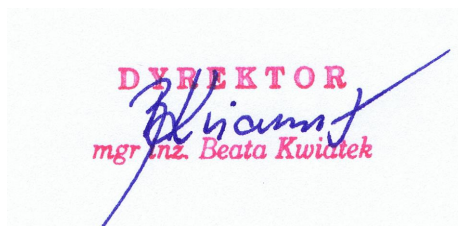 DYREKTOR
mgr inż. Beata Kwiatek